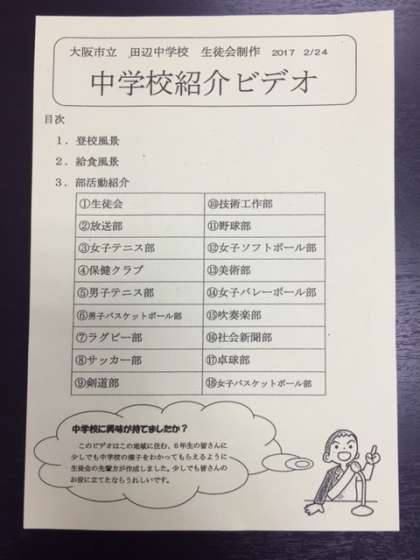 大阪市立　田辺中学校　生徒会制作　2017　2/24
中学校紹介ビデオ
目次
1．登校風景
2．給食風景
3．部活動紹介
①生徒会　⑩技術工作部
②放送部　⑪野球部
③女子テニス部　⑫女子ソフトボール部
④保健クラブ　⑬美術部
⑤男子テニス部　⑭女子バレーボール部
⑥男子バスケットボール部　⑮吹奏楽部
⑦ラグビー部　⑯社会新聞部
⑧サッカー部　⑰卓球部
⑨剣道部　⑱女子バスケットボール部
中学校に興味が持てましたか？
このビデオはこの地域に住む、6年生の皆さんに
少しでも中学校の様子をわかってもらえるように
生徒会の先輩方が作成しました。少しでも皆さんの
お役に立てたならうれしいです。